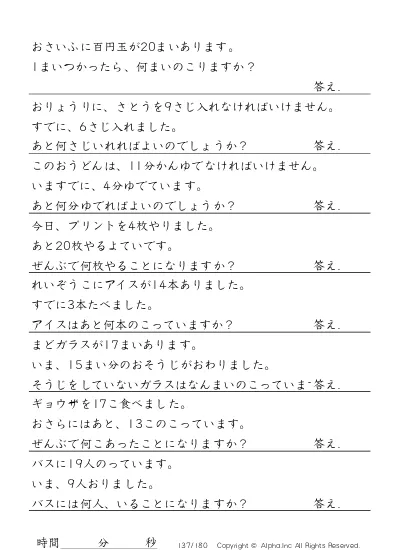 おさいふに百円玉が20まいあります。
1まいつかったら、何まいのこりますか？
答え.
おりょうりに、さとうを9さじ入れなければいけません。
すでに、6さじ入れました。
あと何さじいれればよいのでしょうか？ 答え.
このおうどんは、11分かんゆでなければいけません。
いますでに、4分ゆでています。
あと何分ゆでればよいのでしょうか？ 答え.
今日、プリントを4枚やりました。
あと20枚やるよていです。
ぜんぶで何枚やることになりますか？ 答え.
れいぞうこにアイスが14本ありました。
すでに3本たべました。
アイスはあと何本のこっていますか？ 答え.
まどガラスが17まいあります。
いま、15まい分のおそうじがおわりました。
そうじをしていないガラスはなんまいのこっていま 答え.
ギョウザを17こ食べました。
おさらにはあと、13このこっています。
ぜんぶで何こあったことになりますか？ 答え.
バスに19人のっています。
いま、9人おりました。
バスには何人、いることになりますか？ 答え.
時間 分 秒 137/180 Copyright © Alpha.Inc All Rights Reserved.